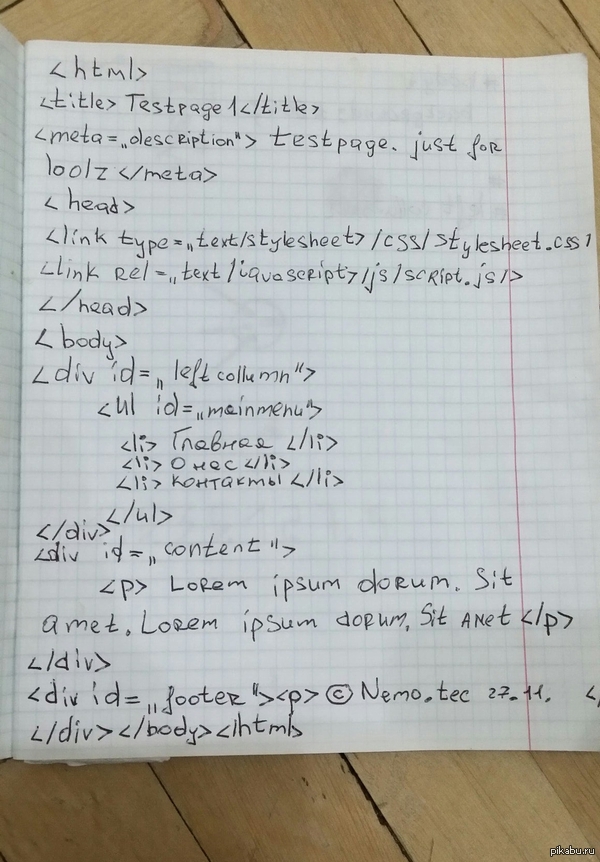 <html>
<title> Testpage 1</title>
<meta=„description"> testpage. just for
loolz </meta>
<head>
<link type=„text/stylesheet>/css/stylesheet.css
<link rel=„text/javascript>/js/script.js/>
</head>
<body>
<div id=„leftcollumn">
<ul id=„mainmenu">
<li> Главная </li>
<li> О нас </li>
<li> контакты </li>
</ul>
</div>
<div id=„content">
<p> Lorem ipsum dorum. Sit
amet. Lorem ipsum dorum. Sit amet </p>
</div>
<div id=„footer"><p>© Nemo.tec 27.11. </
</div></body></html>
pikabu.ru